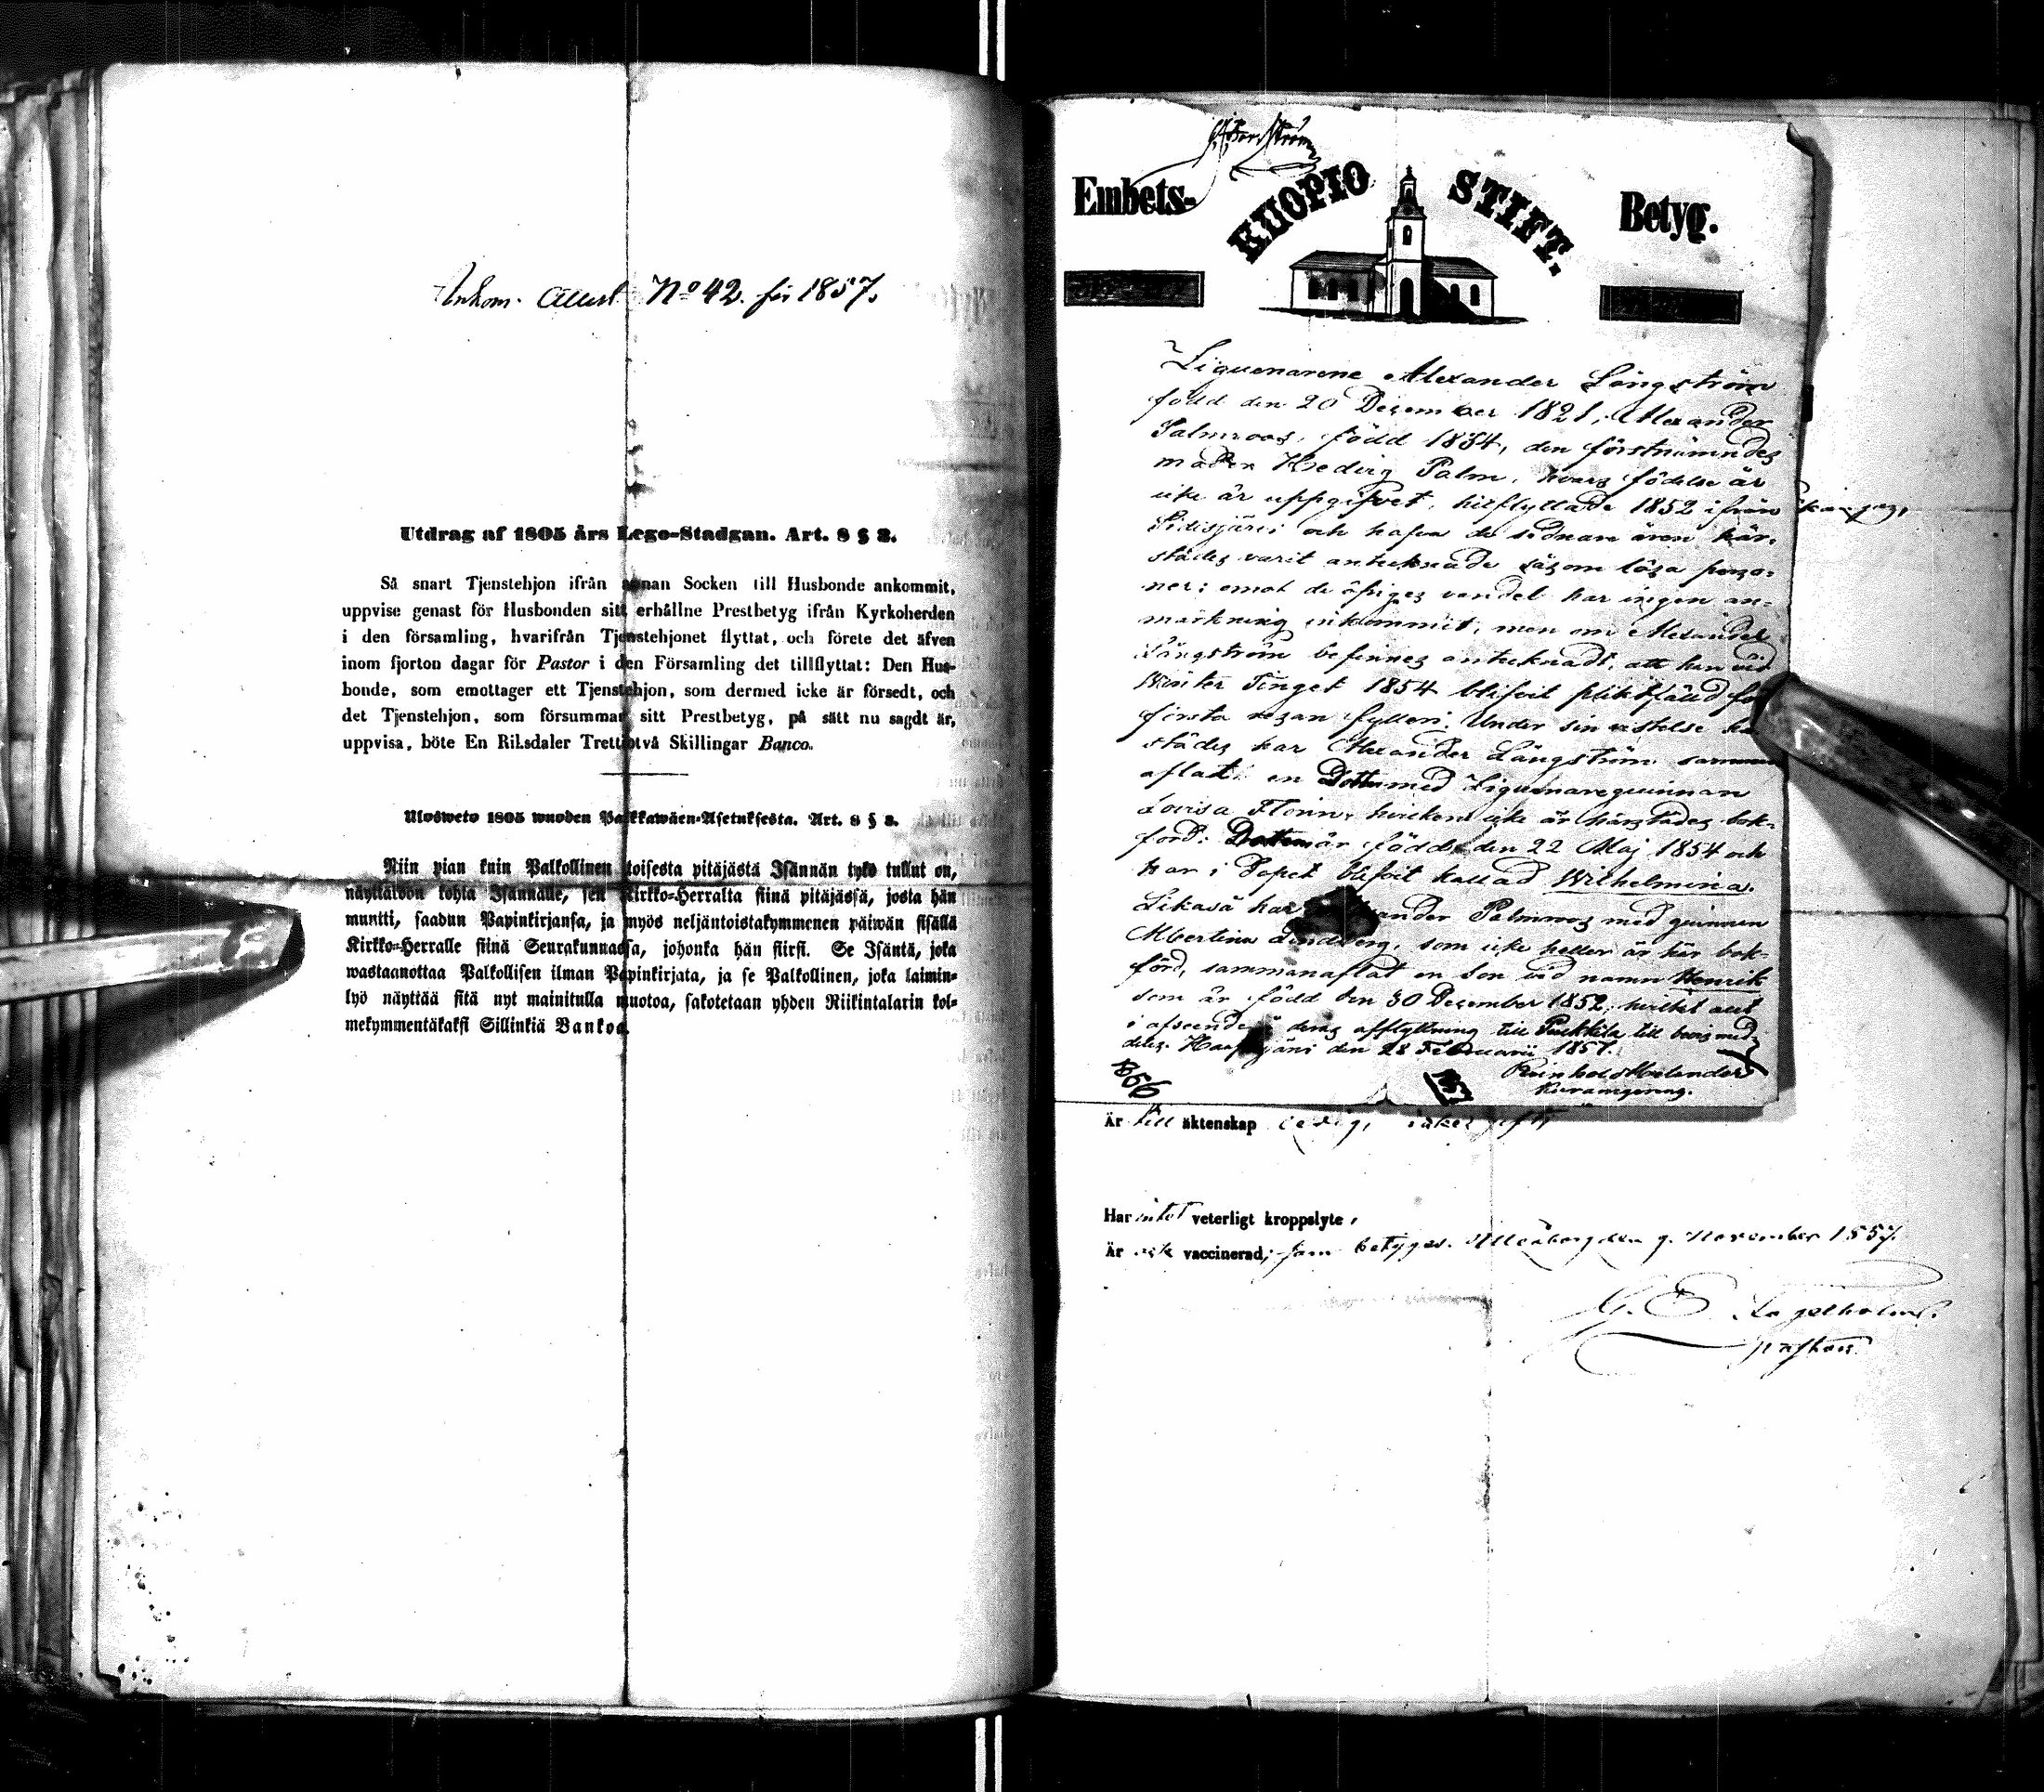 Ankom. Attest No 42. för 1857.
Utdrag af 1805 års Lego-Stadgan. Art. 8 § 3.
Så snart Tjenstehjon ifrån annan Socken till Husbonde ankommit,
uppvise genast för Husbonden sitt erhållne Prestbetyg ifrån Kyrkoherden
i den församling, hvarifrån Tjenstehjonet flyttat, och förete det äfven
inom fjorton dagar för Pastor i den Församling det tillflyttat: Den Hus-
bonde, som emottager ett Tjenstehjon, som dermed icke är försedt, och
det Tjenstehjon, som försummar sitt Prestbetyg, på sätt nu sagdt är,
uppvisa, böte En Riksdaler Trettiotvå Skillingar Banco.
Ulosweto 1805 wuoden Palkkawäen-Asetuksesta. Art. 8 § 3.
Niin pian kuin Palkollinen toisesta pitäjästä Isännän tykö tullut on,
näyttäköön kohta Isännälle, sen Kirkko-Herralta siinä pitäjässä, josta hän
muutti, saadun Papinkirjansa, ja myös neljäntoistakymmenen päiwän sisällä
Kirkko-Herralle siinä Seurakunnassa, johonka hän siirsi. Se Isäntä, joka
wastaanottaa Palkollisen ilman Papinkirjata, ja se Palkollinen, joka laimin-
lyö näyttää sitä nyt mainitulla muotoa, sakotetaan yhden Riikintalarin kol-
mekymmentäkaksi Sillinkiä Bankoa.
Embets- KUOPIO STIFT. Betyg.
Ziguenarene Alexander Långström
född den 20 December 1821, Alexander
Palmroos, född 1834, den förstnämndes
moder Hedvig Palm, hvars födelse år
icke är uppgifvet, hitflyttade 1852 ifrån
och hafva de sednare åren här-
städes varit antecknade såsom lösa perso-
ner; emot de öfriges vandel har ingen an-
märkning inkommit, men om Alexander
Långström befinnes antecknadt, att han vid
Winter Tinget 1854 blifvit pliktfälld för
första resan fylleri. Under sin vistelse
städes har Alexander Långström samman
aflat en Dotter med Ziguenarequinnan
Lovisa Florin, hvilken icke är härstädes bok-
förd. Dottern är född den 22 Maj 1854 och
har i Dopet blifvit kallad Wilhelmina.
Likaså har Palmroos med quinnan
Albertina Lindberg, som icke heller är här bok-
förd, sammanaflat en Son vid namn Henrik
som är född den 30 December 1852, hvilket allt
i afseende å deras afflyttning till Pulkkila till bevis med-
delas. Haapajärvi den 28 Februarii 1857.
Reinhold Helander
1856
Är till äktenskap ledig,
Har intet veterligt kroppslyte,
Är vaccinerad; som betygas. Uleåborg den 9 November 1857.
pastor